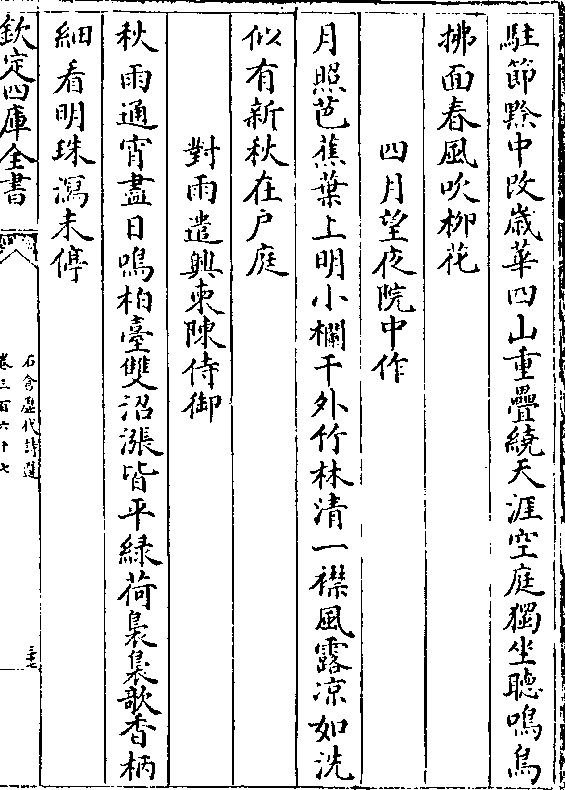 駐節黔中改歳華四山重疊繞天涯空庭獨坐聴鳴鳥
拂面春風吹柳花
四月望夜院中作
月照芭蕉葉上明小欄干外竹林清一襟風露凉如洗
似有新秋在户庭
對雨遣興柬陳侍御
秋雨通宵盡日鳴柏臺雙沼漲皆平緑荷裊裊歌香柄
細看明珠瀉未停
欽定四庫全書
石倉歴代詩選
卷三百六十七
三七